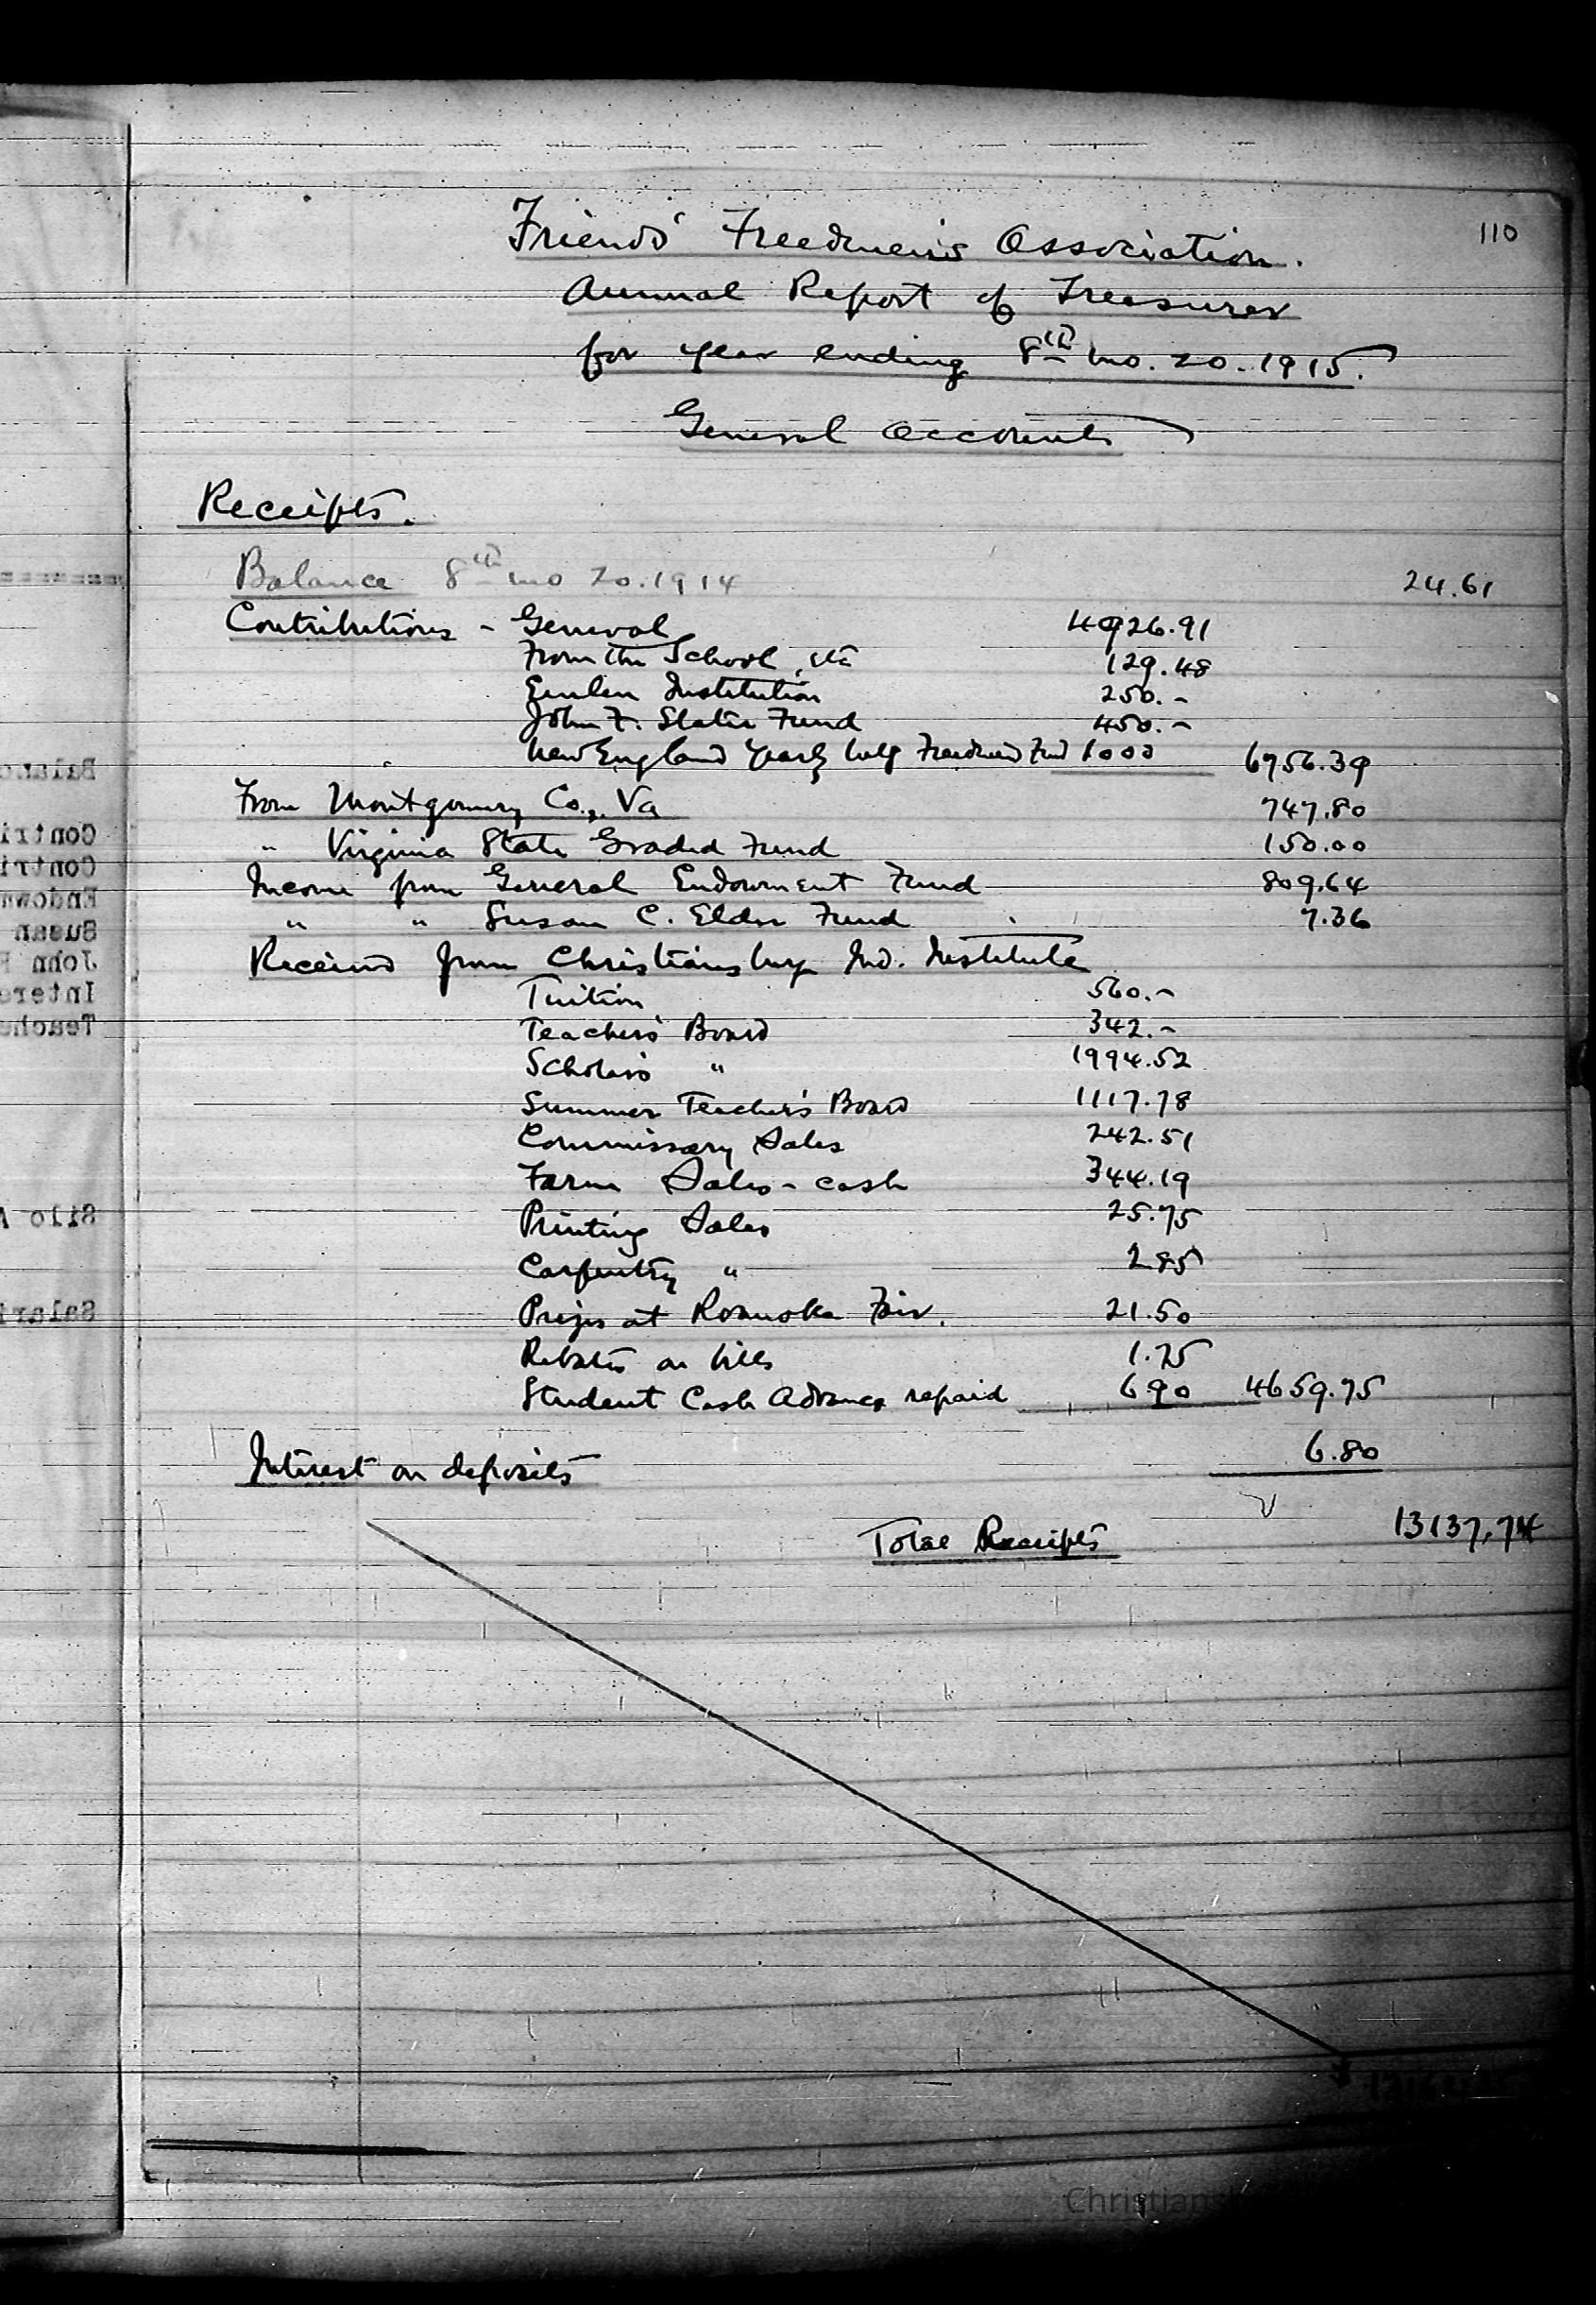 110
Friends' Freedmen's Association.
Annual Report of Treasurer
for year ending 8th mo. 20. 1915.
General Account
Receipts.
Balance 8th mo 20. 1914 24.61
Contributions - General 4926.91
From the School, etc 129.48
Emlen Institution 250.-
John F. Slater Fund 450.-
New England Yearly Mtg Freedmen Fund 1000 6756.39
From Montgomery Co., Va 747.80
" Virginia State Graded Fund 150.00
Income from General Endowment Fund 809.64
" " Susan C. Elder Fund 7.36
Received from Christiansburg Ind. Institute
Tuition 560.-
Teachers' Board 342.-
Scholars " 1994.52
Summer Teachers' Board 1117.78
Commissary Sales 242.51
Farm Sales - cash 344.19
Printing Sales 25.75
Carpentry " 2.85
Prizes at Roanoke Fair. 21.50
Rebates on bills 1.75
Student Cash Advances repaid 6.90 4659.75
Interest on deposits 6.80
Total Receipts 13137.74